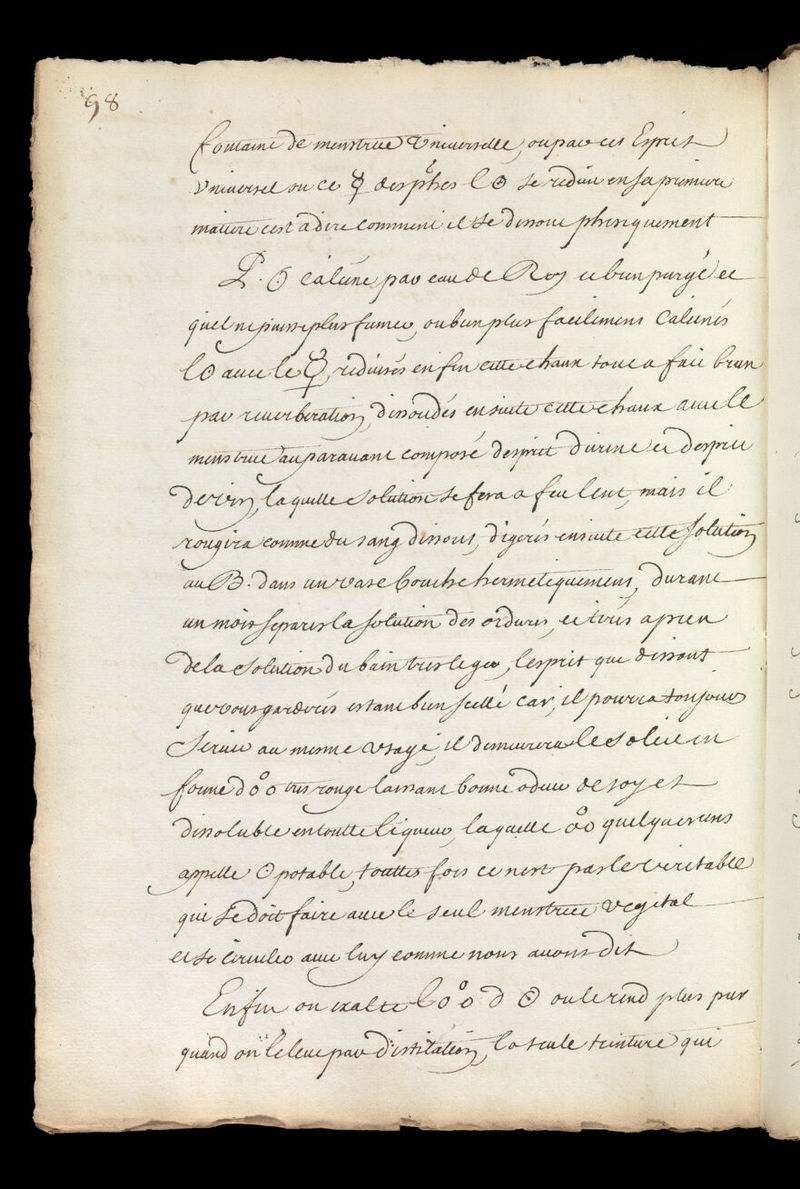 98
fontaine de menstrue Universelle, ou par cet Esprit
Universel ou ce ☿ des phes l ☉ se reduit en sa premiere
matiere cest a dire comment il se dissout phisiquement
☉ calciné par eau de Roy et bien purgé et
quel ne puisse plus fumer, ou bien plus facilement Calcinés
l☉ avec le ☿, reduisés en fin cette chaux tout a fait brun
par reverberation, dissoudés en suite cette chaux avec le
menstrue auparavant composé desprit Durine et desprit
de vin, laquelle solution se fera a feu lent, mais il
rougira comme du sang dissout, digerés ensuite cette solution
au B. dans un vase bouché hermetiquement, durant
un mois separer la solution des ordures, et tirés apres
de la solution du bain tres leger, lesprit que dissout
que vous garderés estant bien scellé car, il pourra tousjours
servir au mesme usage, il demeurera le soleil en
forme d oo tres rouge laissant bonne odeur de soy et
dissoluble en toutte liqueur, laquelle oo quelques uns
appelle ☉ potable, touttes fois ce nest pas le veritable
qui se doit faire avec le seul menstrue vegetal
et se circuler avec luy comme nous avons dit
Enfin on exalte l oo d ☉ ou le rend plus pur
quand on leleve par distilation, la seule teinture qui